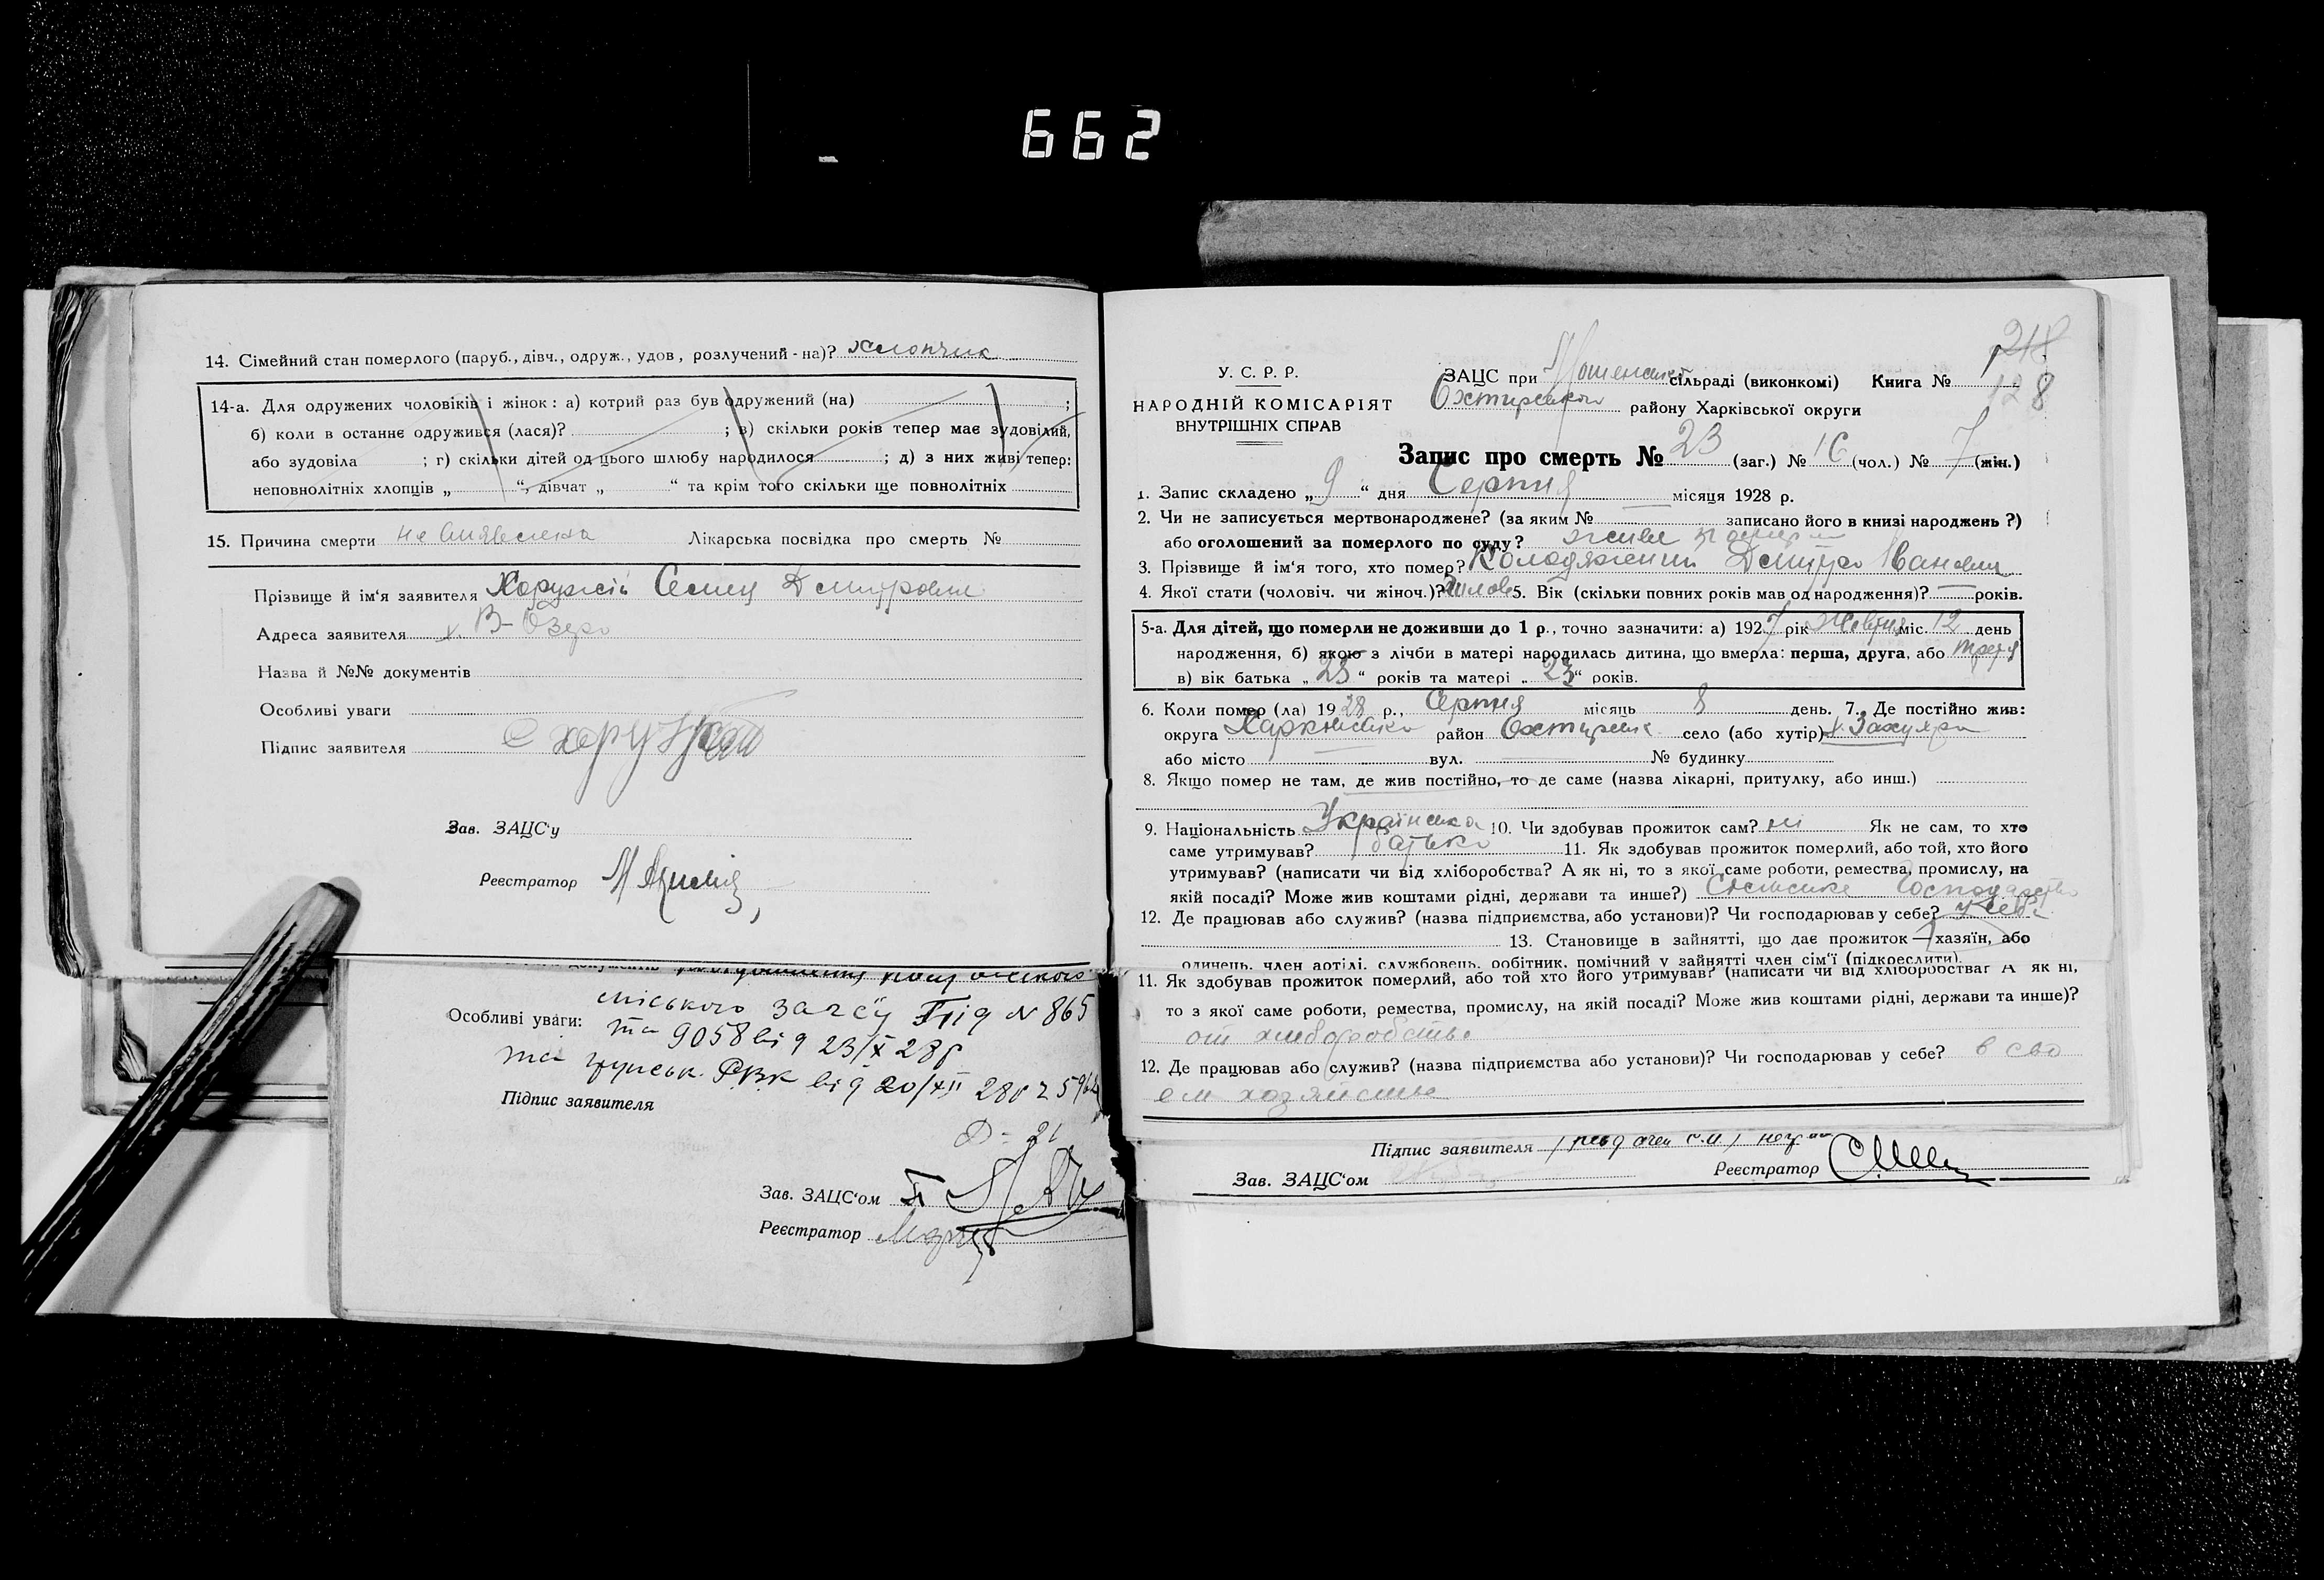 662
14. Сімейний стан померлого (паруб., дівч., одруж., удов, розлучений-на)? хлопчик
14-а. Для одружених чоловіків і жінок: а) котрий раз був одружений (на) ;
б) коли в останнє одружився (лася)? ; в) скільки років тепер має зудовілий,
або зудовіла ; г) скільки дітей од цього шлюбу народилося ; д) з них живі тепер:
неповнолітніх хлопців „ “, дівчат „ “ та крім того скільки ще повнолітніх
15. Причина смерти Лікарська посвідка про смерть №
Прізвище й ім'я заявителя Хоружий Семен Дмитрович
Адреса заявителя х. В-Озеро
Назва й №№ документів
Особливі уваги
Підпис заявителя С хоружий
Зав. ЗАЦС'у
Реєстратор
міського загсу
Особливі уваги: та 9058 від 23/X 28р
та РВК від 20/XII 28р
Підпис заявителя
Зав. ЗАЦС'ом
Реєстратор
218
У. С. Р. Р.
НАРОДНІЙ КОМІСАРІЯТ
ВНУТРІШНІХ СПРАВ
ЗАЦС при сільраді (виконкомі) Книга № 128
Охтирского району Харківської округи
Запис про смерть № 23 (заг.) № 16 (чол.) № 7 (жін.)
1. Запис складено „ 9 “ дня Серпня місяця 1928 р.
2. Чи не записується мертвонароджене? (за яким № записано його в книзі народжень?)
або оголошений за померлого по суду?
3. Прізвище й ім'я того, хто помер? Колодяжний Дмитро Іванович
4. Якої стати (чоловіч. чи жіноч.)? чолов 5. Вік (скільки повних років мав од народження)? — років.
5-а. Для дітей, що померли не доживши до 1 р., точно зазначити: а) 1927 рік Жовтня міс. 12 день
народження, б) якою з лічби в матері народилась дитина, що вмерла: перша, друга, або третя
в) вік батька „ 23 “ років та матері „ 23 “ років.
6. Коли помер (ла) 1928 р., Серпня місяць 8 день. 7. Де постійно жив:
округа Харківська район Охтирськ село (або хутір)
або місто вул. № будинку
8. Якщо помер не там, де жив постійно, то де саме (назва лікарні, притулку, або инш.)
9. Національність Українська 10. Чи здобував прожиток сам? ні Як не сам, то хто
саме утримував? батько 11. Як здобував прожиток померлий, або той, хто його
утримував? (написати чи від хліборобства? А як ні, то з якої саме роботи, ремества, промислу, на
якій посаді? Може жив коштами рідні, держави та инше?) Сільське господарство
12. Де працював або служив? (назва підприємства, або установи)? Чи господарював у себе? у себе
13. Становище в зайнятті, що дає прожиток — хазяїн, або
одинець, член артілі, службовець, робітник, помічний у зайнятті член сім'ї (підкреслити).
11. Як здобував прожиток померлий, або той хто його утримував? (написати чи від хліборобства? А як ні,
то з якої саме роботи, ремества, промислу, на якій посаді? Може жив коштами рідні, держави та инше)?
от хлеборобства
12. Де працював або служив? (назва підприємства або установи)? Чи господарював у себе? в сво
ем хозяйстве
Підпис заявителя
Зав. ЗАЦС'ом Реєстратор